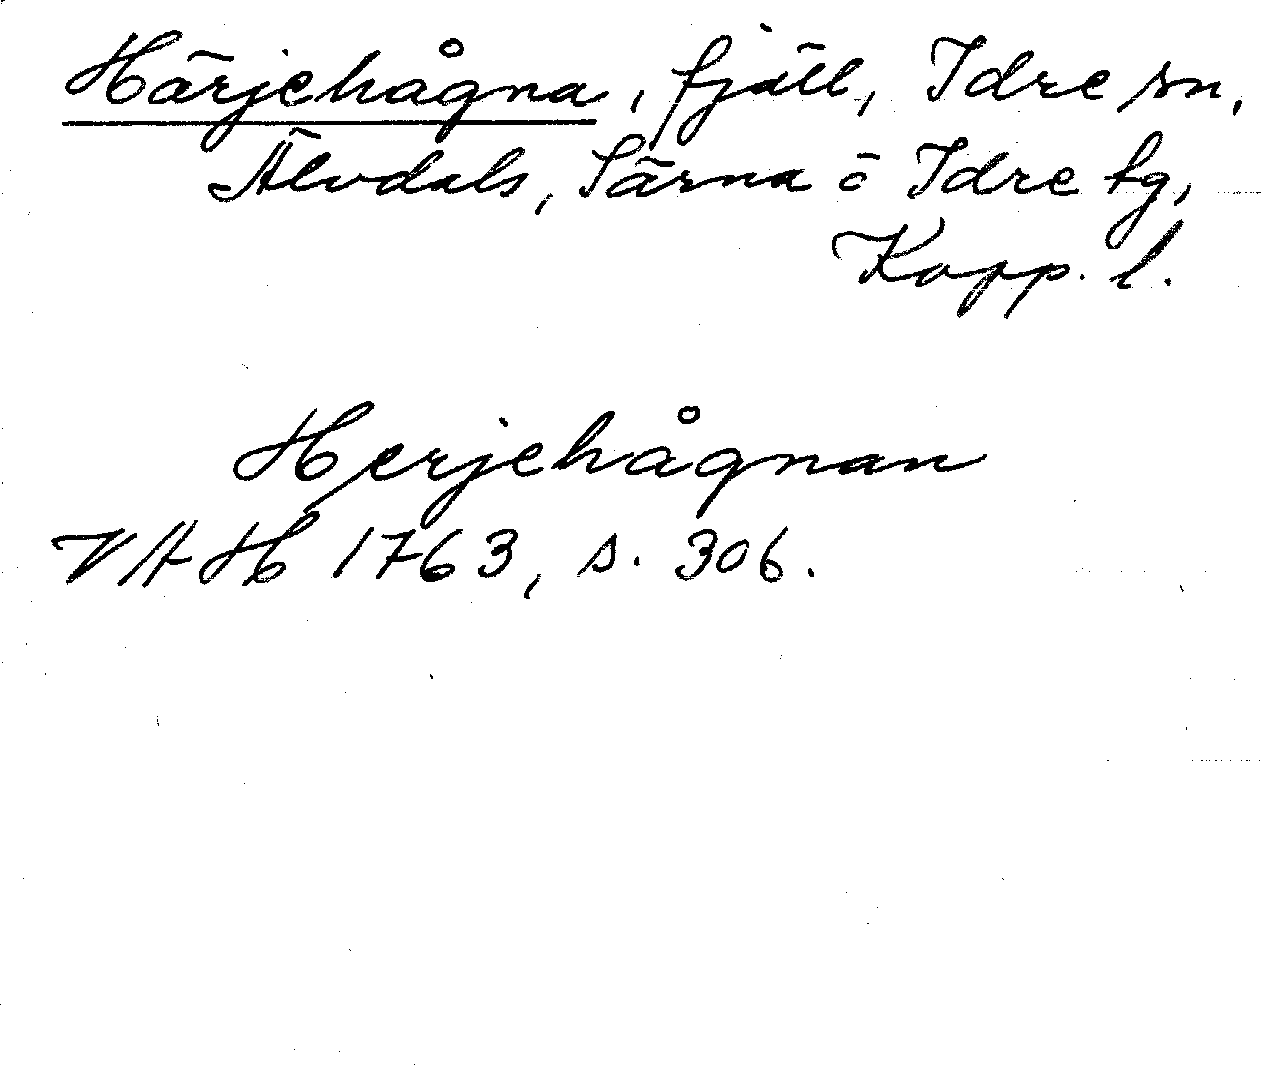 Härjehågna, fjäll, Idre sn,
Älvdals, Särna ö Idre tg,
Kopp. l.
Herjehågnan
VAH 1763, s. 306.